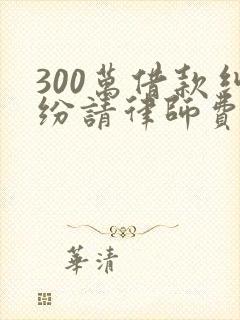 300萬借款糾
紛請律師費
華清